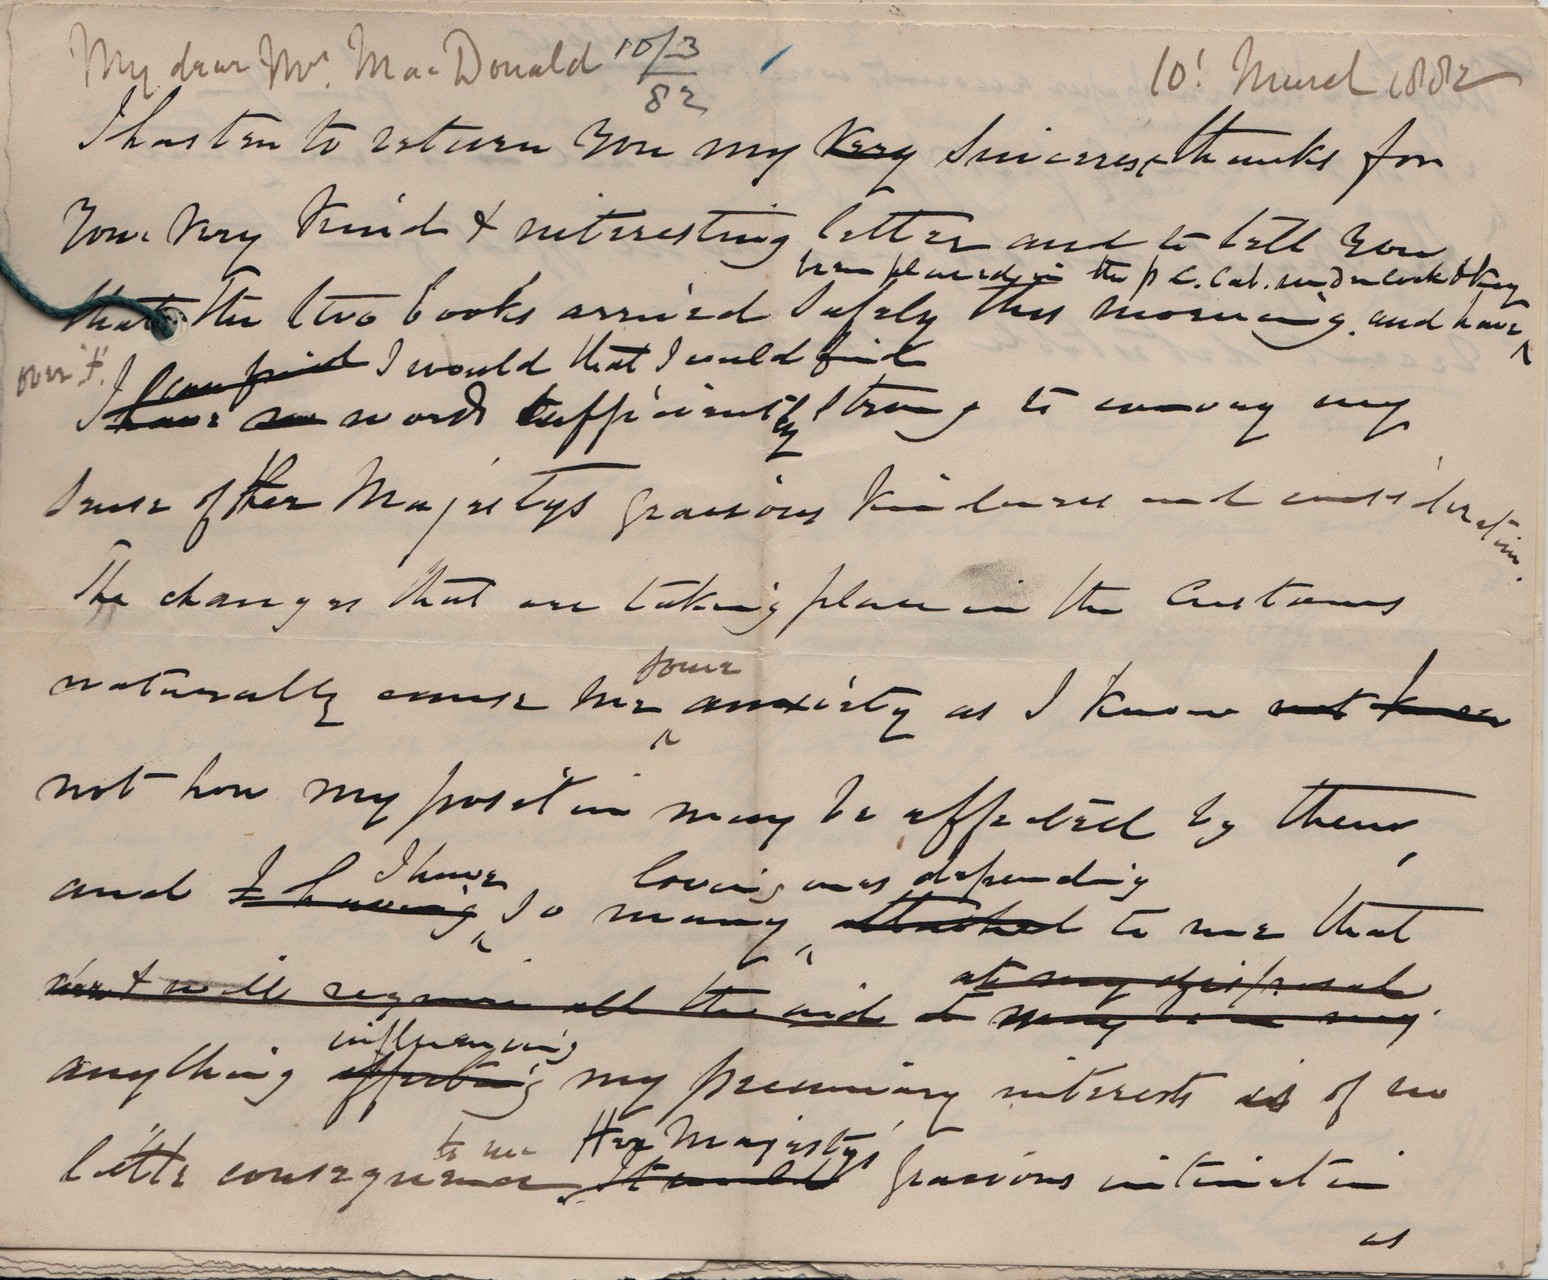 My dear Mr. MacDonald 10/3/82 10! March 1882
I hasten to return you my very sincerest thanks for
your very kind & interesting letter and to tell you
been placed in the p C. Cab. under lock & key
that the two books arrived safely this morning. and have
I can find I would that I could find
over it.
I have no words sufficiently strong to convey my
sense of Her Majestys gracious kindness and consideration.
The changes that are taking place in the Customs
some
naturally cause me anxiety as I know not know
not how my position may be affected by them,
I have loving ones depending
and I having so many attached to me that
at my disposal
& will require all the aid may be in my
influencing
anything affecting my pecuniary interests is of no
to me Her Majestys'
little consequence. It would gracious intimation
as